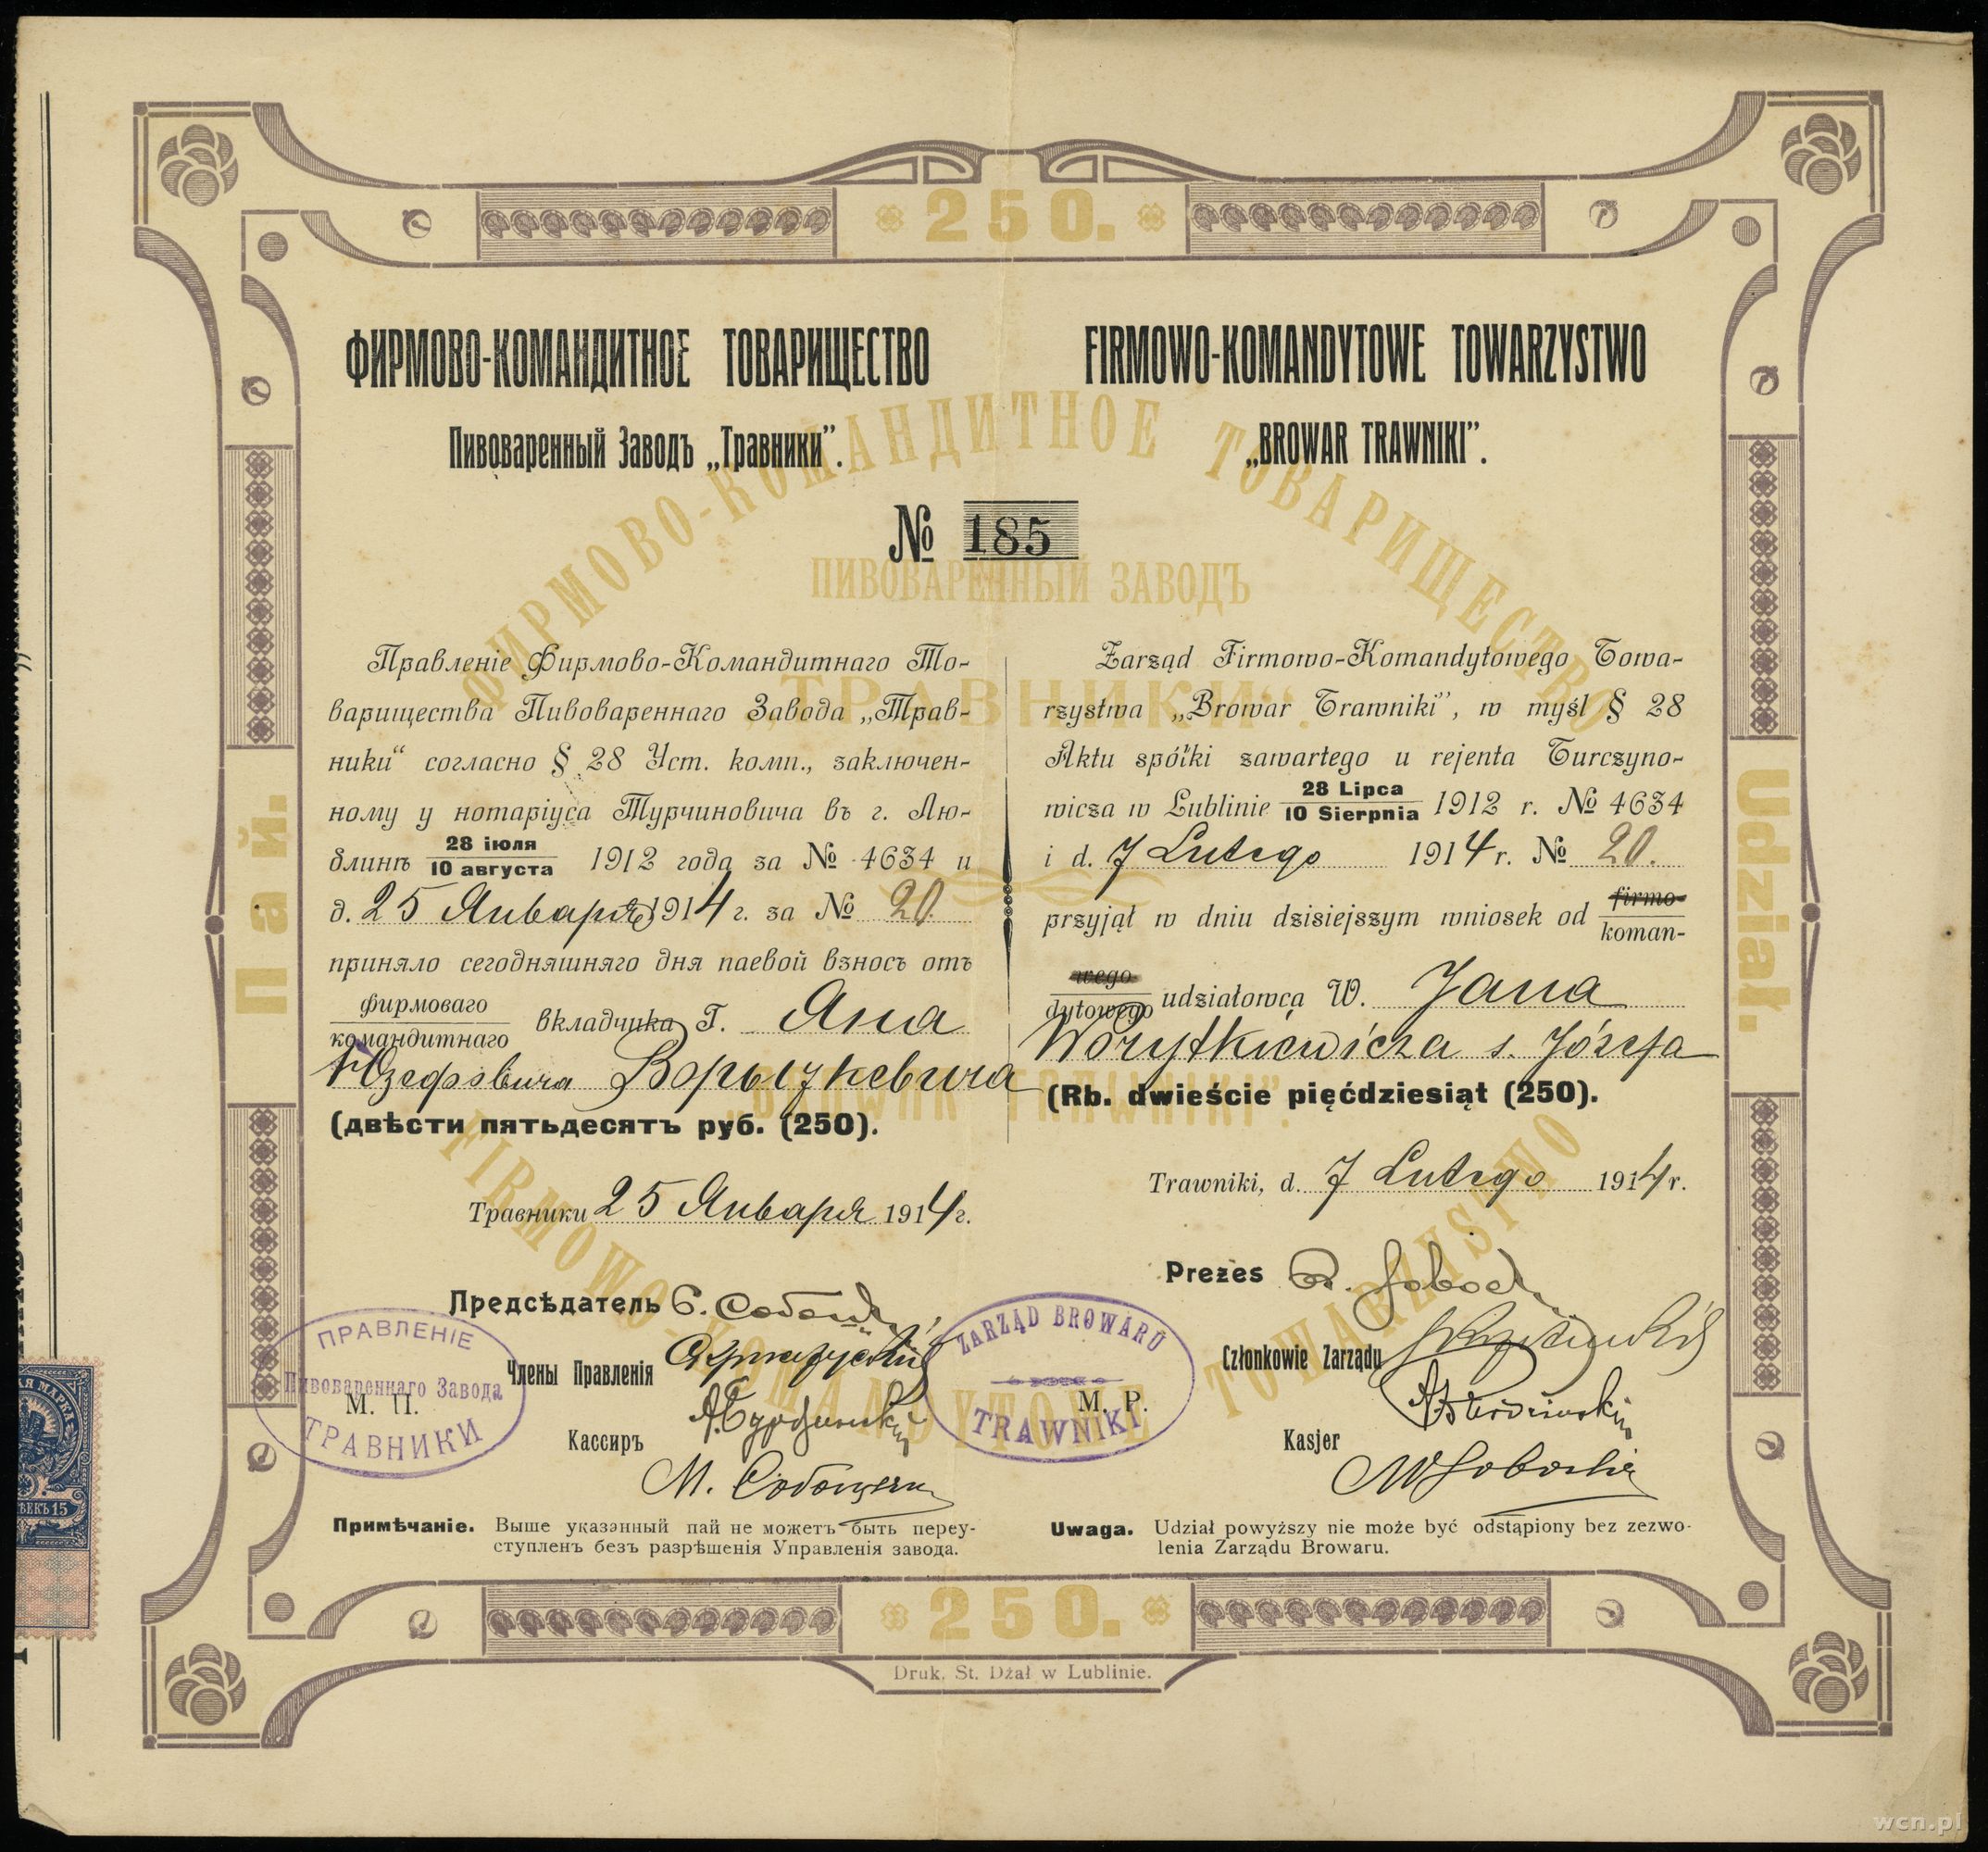 250.
ФИРМОВО-КОМАНДИТНОЕ ТОВАРИЩЕСТВО
Пивоваренный Заводъ „Травники”.
FIRMOWO-KOMANDYTOWE TOWARZYSTWO
„BROWAR TRAWNIKI”.
№ 185
ФИРМОВО-КОМАНДИТНОЕ ТОВАРИЩЕСТВО
ПИВОВАРЕННЫЙ ЗАВОДЪ
„ТРАВНИКИ”.
Правленіе Фирмово-Командитнаго То-
варищества Пивовареннаго Завода „Трав-
ники“ согласно § 28 Уст. комп., заключен-
ному у нотаріуса Турчиновича въ г. Лю-
блинѣ 28 іюля / 10 августа 1912 года за № 4634 и
д. 25 Января 1914 г. за № 20.
приняло сегодняшняго дня паевой взносъ отъ
фирмоваго / командитнаго вкладчика Г. Яна
Юзефовича Ворыткевича
(двѣсти пятьдесятъ руб. (250).
Травники 25 Января 1914 г.
Предсѣдатель
Члены Правленія
Кассиръ
М. П.
ПРАВЛЕНІЕ
Пивовареннаго Завода
ТРАВНИКИ
Примѣчаніе. Выше указанный пай не можетъ быть переу-
ступленъ безъ разрѣшенія Управленія завода.
Zarząd Firmowo-Komandytowego Towa-
rzystwa „Browar Trawniki”, w myśl § 28
Aktu spółki zawartego u rejenta Turczyno-
wicza w Lublinie 28 Lipca / 10 Sierpnia 1912 r. № 4634
i d. 7 Lutego 1914 r. № 20.
przyjął w dniu dzisiejszym wniosek od firmo- / koman-
wego / dytowego udziałowca W. Jana
Worytkiewicza s. Józefa
(Rb. dwieście pięćdziesiąt (250).
Trawniki, d. 7 Lutego 1914 r.
Prezes
Członkowie Zarządu
Kasjer
M. P.
ZARZĄD BROWARU
TRAWNIKI
Uwaga. Udział powyższy nie może być odstąpiony bez zezwo-
lenia Zarządu Browaru.
„BROWAR TRAWNIKI”.
FIRMOWO-KOMANDYTOWE TOWARZYSTWO
Пай.
Udział.
250.
Druk. St. Dżał w Lublinie.
wcn.pl